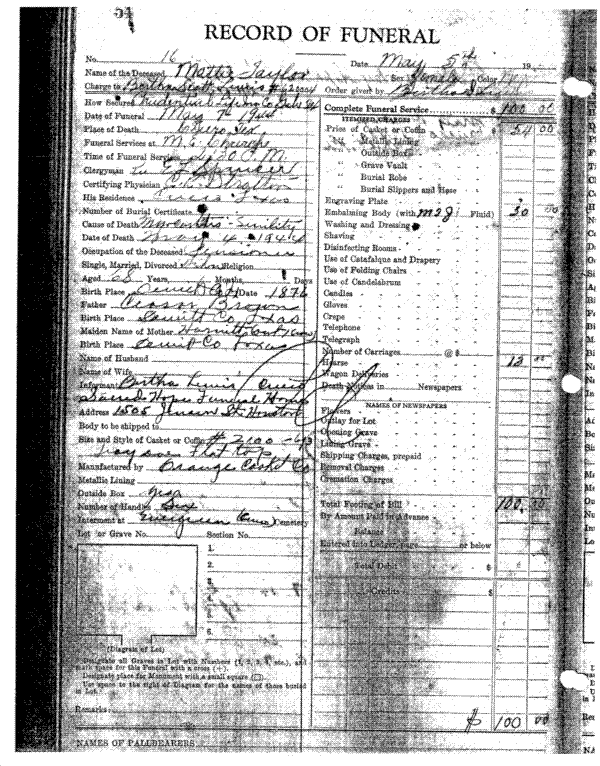 54
RECORD OF FUNERAL
No. 16
Date May 5th 19
Name of the Deceased Mattie Taylor
Sex Female Color
Charge to Bertha Scott Lewis
Order given by Bertha
How Secured Prudential
Date of Funeral May 7th 1944
Place of Death Cuero Tex
Funeral Services at M.E. Church
Time of Funeral Service M.
Clergyman
Certifying Physician
His Residence Texas
Number of Burial Certificate
Cause of Death Myocarditis - Senility
Date of Death May 4 1944
Occupation of the Deceased
Single, Married, Divorced Religion
Aged 68 Years, Months, Days
Birth Place Dewitt Co Date 1876
Father Brown
Birth Place Dewitt Co Texas
Maiden Name of Mother Harriett
Birth Place Dewitt Co Texas
Name of Husband
Name of Wife
Informant Bertha Lewis
Funeral Home
Address 1505 Jensen St. Houston
Body to be shipped to
Size and Style of Casket or Coffin # 2100 - 6/3
Flat top
Manufactured by Orange Casket Co
Metallic Lining
Outside Box
Number of Handles Six
Interment at Evergreen Cemetery
Lot or Grave No. Section No.
1.
2.
3.
4.
5.
6.
(Diagram of Lot)
Designate all Graves in Lot with Numbers (1, 2, 3, 4, etc.), and
mark space for this Funeral with a cross (+)
Designate place for Monument with a small square (□).
Use space to the right of Diagram for the names of those buried
in Lot.
Remarks:
NAMES OF PALLBEARERS
Complete Funeral Service $ 100 00
ITEMIZED CHARGES
Price of Casket or Coffin 54 00
" Metallic Lining
" Outside Box
" Grave Vault
" Burial Robe
" Burial Slippers and Hose
Engraving Plate
Embalming Body (with Fluid) 30 00
Washing and Dressing
Shaving
Disinfecting Rooms
Use of Catafalque and Drapery
Use of Folding Chairs
Use of Candelabrum
Candles
Gloves
Crepe
Telephone
Telegraph
Number of Carriages @ $
Hearse 12 00
Wagon Deliveries
Death Notices in Newspapers
NAMES OF NEWSPAPERS
Flowers
Outlay for Lot
Opening Grave
Lining Grave
Shipping Charges, prepaid
Removal Charges
Cremation Charges
Total Footing of Bill 100.00
By Amount Paid in Advance
Balance
Entered into Ledger, page or below
Total Debit $
Credits $
$ 100 00